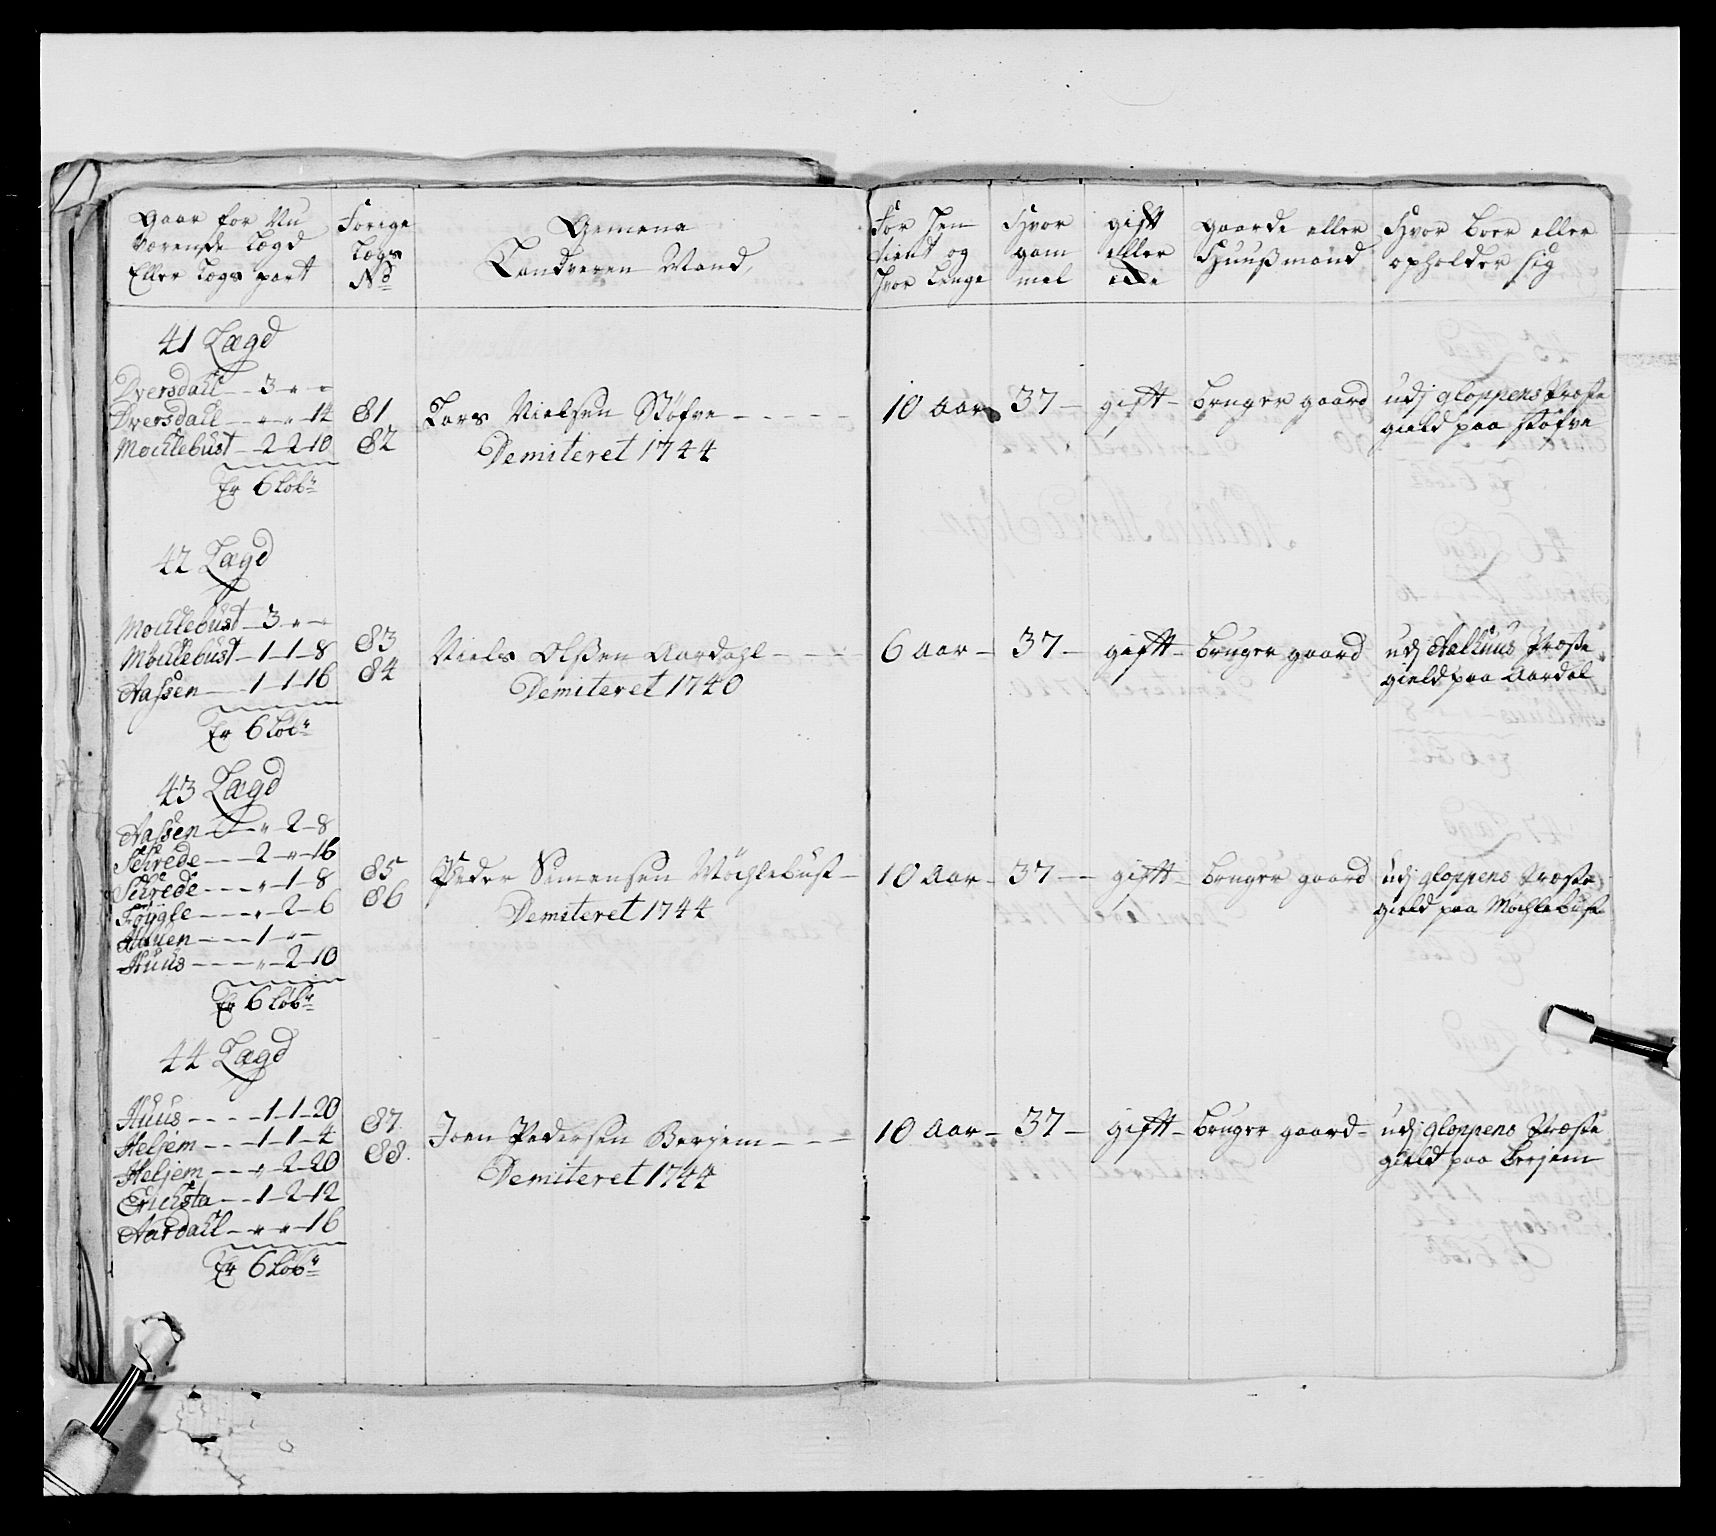 Gaar for Nu
værende Lægd
Eller Lægs part
Forige
Lægs
No
Gemene
Landværn Mand,
For Hen
tient og
hvor Lenge
Hvor
gam
mel
gift
eller
eÿ
Gaarde eller
Huußmænd
Hvor boer eller
opholder sig
41 Lægd
Dversdahl - 3 - " -
Dversdall - " - " - 14
Mochlebust - 2 - 2 - 10
Er 6 Løbr
81
82
Lars Nielsen Støfve
Demiteret 1744
10 Aar
37
gift
bruger gaard
udj gloppens Præste
gield paa Støfve
42 Lagd
Mochlebust - 3 - " -
Mochlebust - 1 - 1 - 8
Aassen - 1 - 1 - 16
Er 6 Løbr
83
84
Niels Olßen Aardahl
Demiteret 1740
6 Aar
37
gift
bruger gaard
udj Aelhuus Præste
gield paa Aardal
43 Lægd
Aassen - " - 2 - 8
Schrede - 2 - " - 16
Schrede - " - 1 - 8
Føygle - " - 2 - 6
Hauen - 1 - " -
Huus - " - 2 - 10
Er 6 Løbr
85
86
Peder Simensen Møchlebust
Demiteret 1744
10 Aar
37
gift
bruger gaard
udj gloppens Præste
gield paa Mochlebust
44 Lægd
Huus - 1 - 1 - 20
Heljem - 1 - 1 - 4
Heljem - " - 2 - 20
Erichsta - 1 - 2 - 12
Aardahl - " - " - 16
Er 6 Løbr
87
88
Joen Pedersen Berjem
Demiteret 1744
10 Aar
37
gift
bruger gaard
udj gloppens Præste
gield paa Berjem